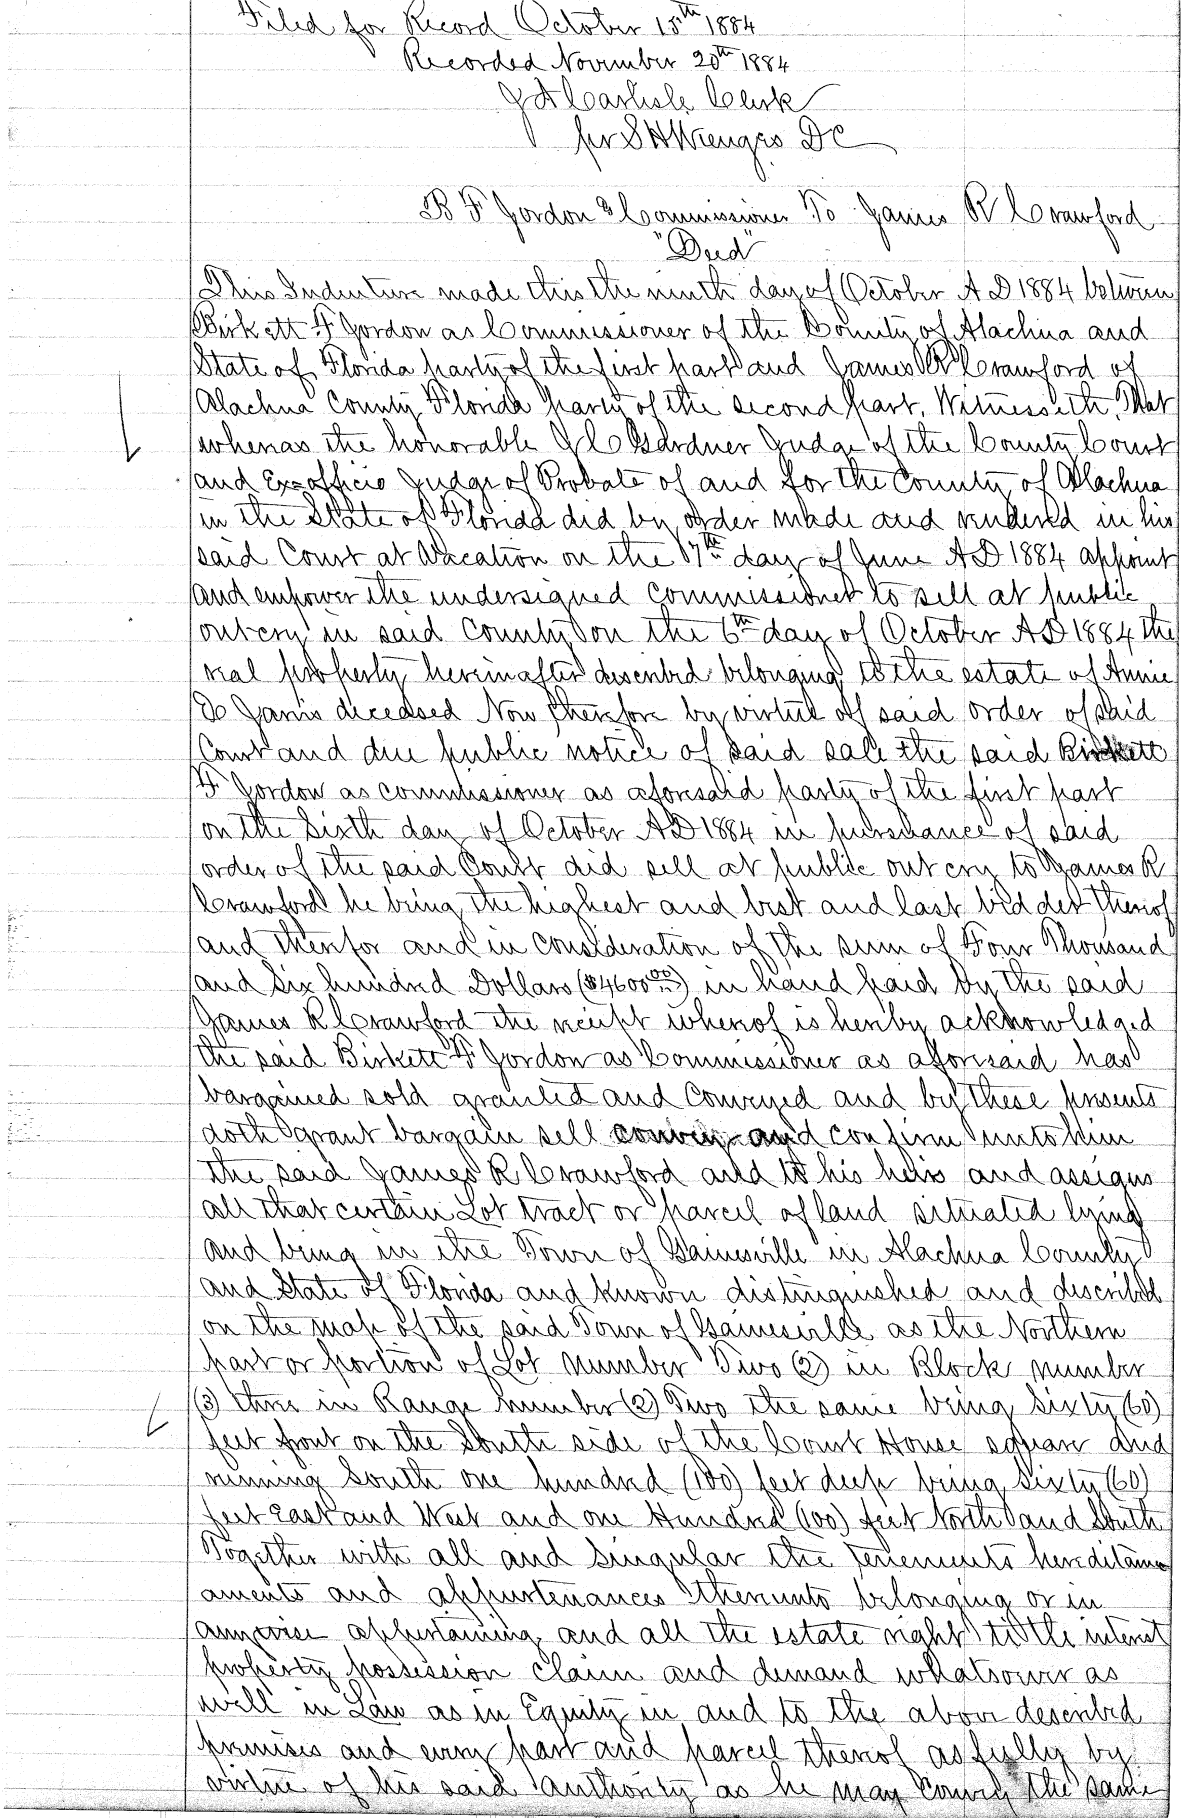 Filed for Record October 15th 1884
Recorded November 20th 1884
J A Carlisle Clerk
per S H Wienges DC
B F Gordon Commissioner To James R Crawford
"Deed"
This Indenture made this the ninth day of October A D 1884 between
Birkett F Gordon as Commissioner of the County of Alachua and
State of Florida party of the first part and James R Crawford of
Alachua County Florida party of the second part, Witnesseth, That
whereas the honorable J C Gardner Judge of the County Court
and Ex-officio Judge of Probate of and for the County of Alachua
in the State of Florida did by order made and rendered in his
said Court at Vacation on the 17th day of June A D 1884 appoint
and empower the undersigned Commissioner to sell at public
outcry in said County on the 6th day of October A D 1884 the
real property hereinafter described belonging to the estate of Annie
deceased Now therefore by virtue of said order of said
Court and due public notice of said sale the said Birkett
F Gordon as commissioner as aforesaid party of the first part
on the Sixth day of October A D 1884 in pursuance of said
order of the said Court did sell at public out cry to James R
Crawford he being the highest and best and last bidder thereof
and therefor and in consideration of the sum of Four Thousand
and Six hundred Dollars ($4600 00) in hand paid by the said
James R Crawford the receipt whereof is hereby acknowledged
the said Birkett F Gordon as Commissioner as aforesaid has
bargained sold granted and conveyed and by these presents
doth grant bargain sell convey and confirm unto him
the said James R Crawford and to his heirs and assigns
all that certain Lot tract or parcel of land situated lying
and being in the Town of Gainesville in Alachua County
and State of Florida and known distinguished and described
on the map of the said Town of Gainesville as the Northern
part or portion of Lot number Two (2) in Block number
(3) three in Range number (2) Two the same being Sixty (60)
feet front on the South side of the Court House square and
running South one hundred (100) feet deep being Sixty (60)
feet East and West and one Hundred (100) feet North and South
Together with all and singular the tenements hereditam
aments and appurtenances thereunto belonging or in
anywise appertaining and all the estate right tittle interest
property possession claim and demand whatsoever as
well in Law as in Equity in and to the above described
premises and every part and parcel thereof as fully by
virtue of his said authority as he may convey the same